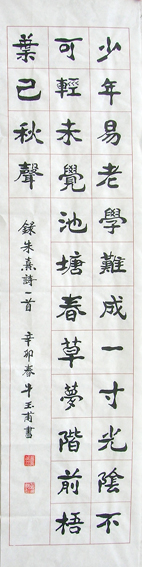 少年易老學難成一寸光陰不
可輕未覺池塘春草夢階前梧
葉己秋聲
錄朱熹詩一首 辛卯春牛玉甫書